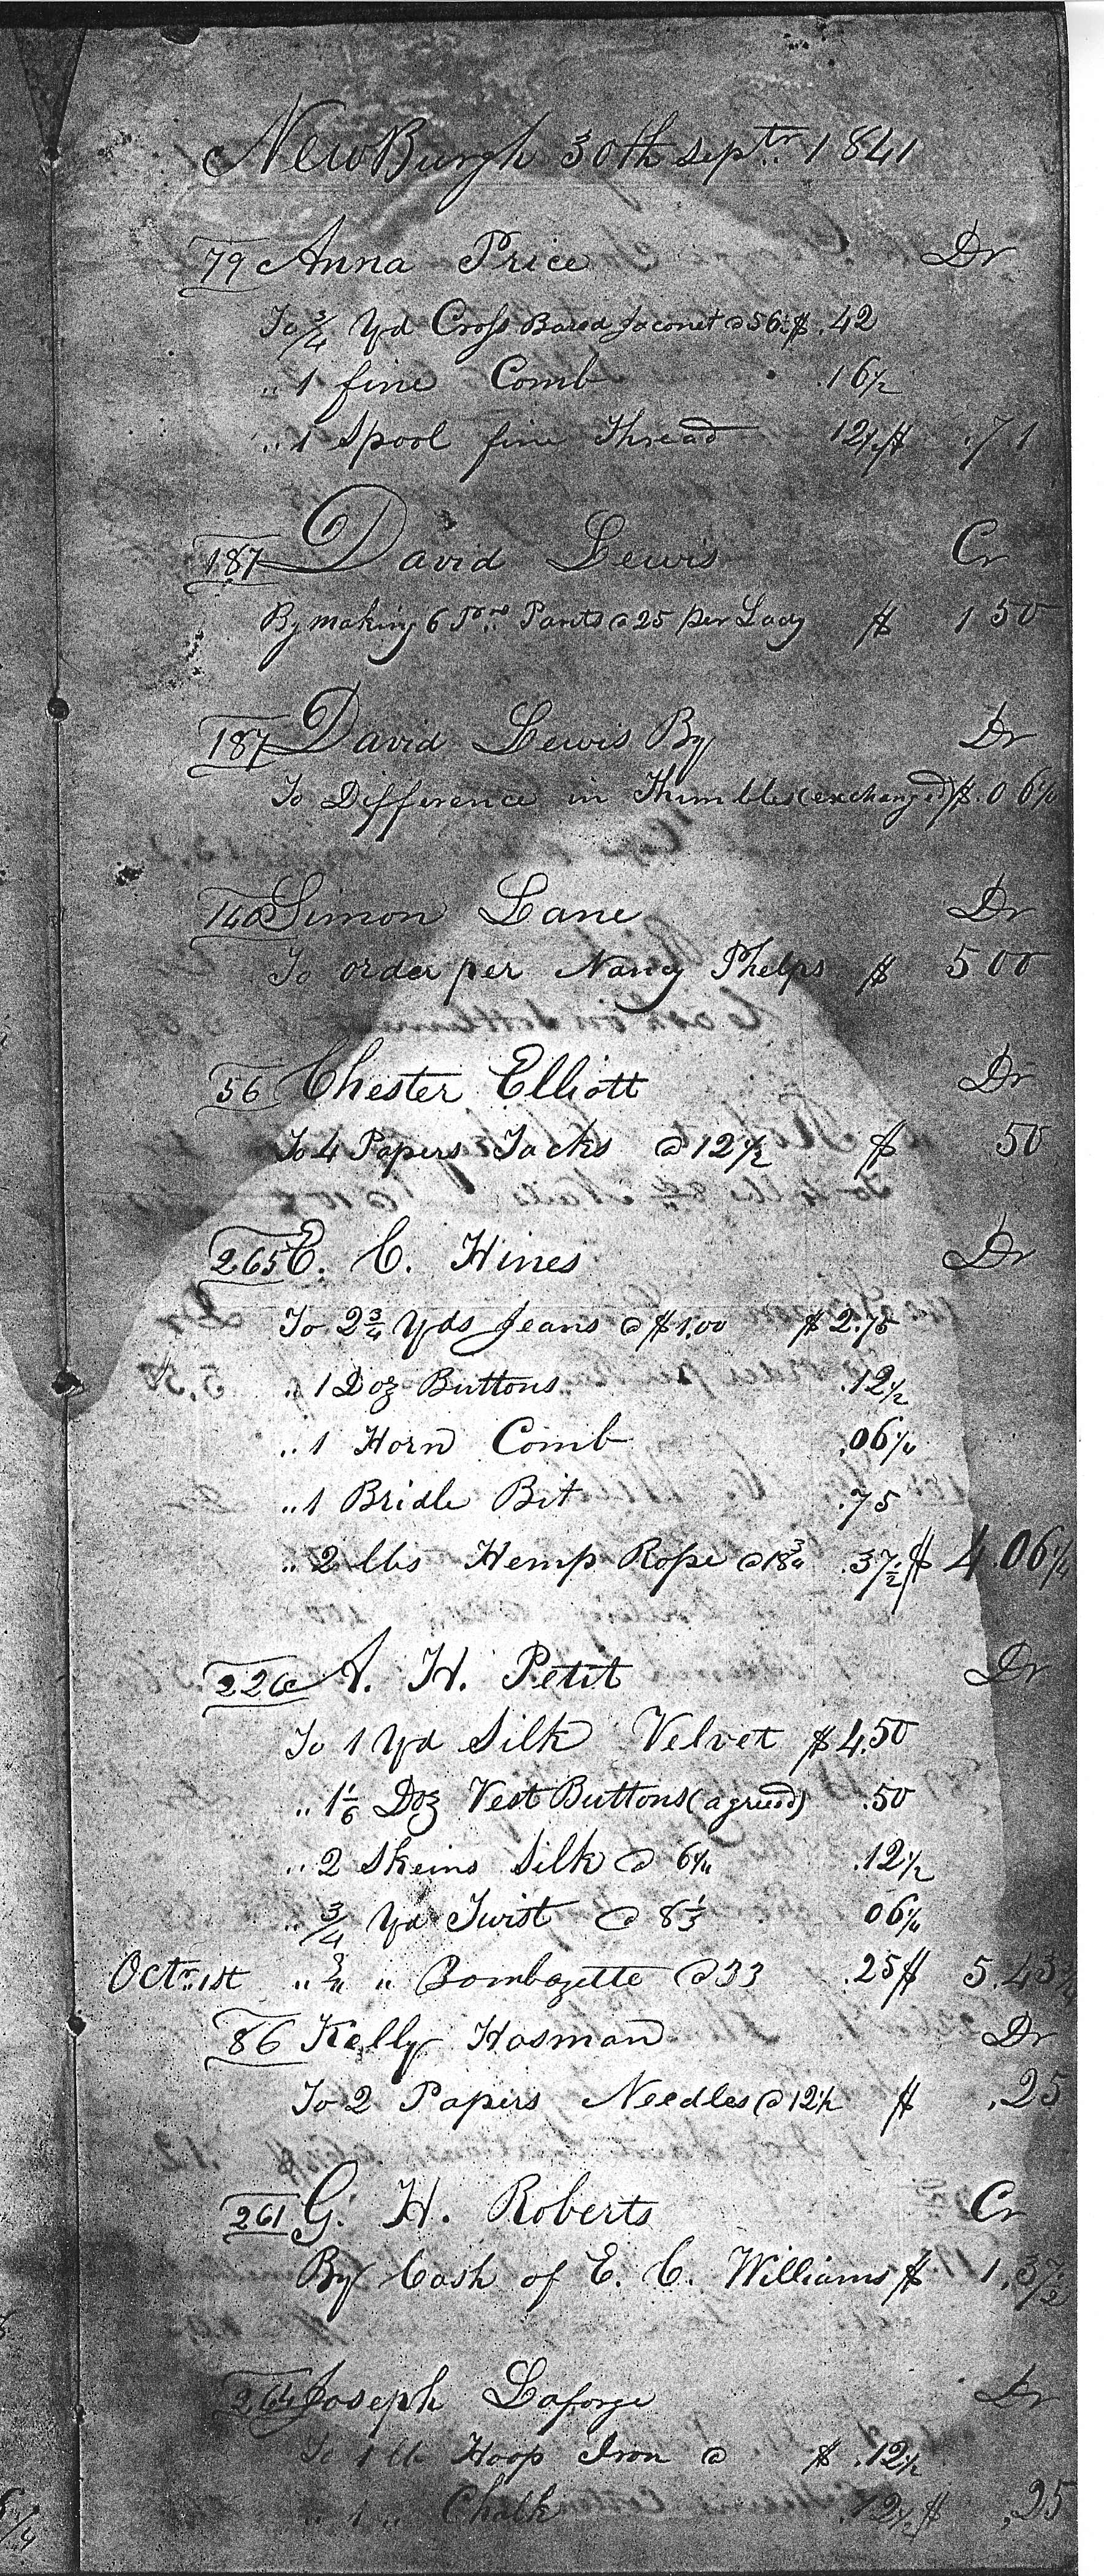 NewBurgh 30th Septr. 1841
79 Anna Price Dr
To 3/4 Yd Cross Bared Jaconet @ 56 $ .42
" 1 fine Comb .16 1/2
" 1 Spool fine Thread 12 1/2 $ .71
187 David Lewis Cr
By making 6 Prs Pants @ 25 per Lady $ 1 50
187 David Lewis By Dr
To Difference in Thimbles (exchanged) $ .06 1/4
140 Simon Lane Dr
To order per Nancy Phelps $ 5 00
56 Chester Elliott Dr
To 4 Papers Tacks @ 12 1/2 $ 50
265 C. C. Hines Dr
To 2 3/4 Yds Jeans @ $1.00 $ 2.75
" 1 Doz Buttons .12 1/2
" 1 Horn Comb .06 1/4
" 1 Bridle Bit .75
" 2 lbs Hemp Rope @ 18 3/4 .37 1/2 $ 4.06 1/4
226 A. H. Petit Dr
To 1 Yd Silk Velvet $ 4.50
" 1 1/6 Doz Vest Buttons (agreed) .50
" 2 Skeins Silk @ 6 1/4 .12 1/2
" 3/4 Yd Twist @ 8 1/3 06 1/4
Octr. 1st " 3/4 " Bombazette @ 33 .25 $ 5.43
86 Kelly Hosman Dr
To 2 Papers Needles @ 12 1/2 $ .25
261 G. H. Roberts Cr
By Cash of E. C. Williams $ 1.37 1/2
264 Joseph Laforge Dr
To 1 lb Hoop Iron @ $ .12 1/2
" 1 " Chalk .12 1/2 $ .25